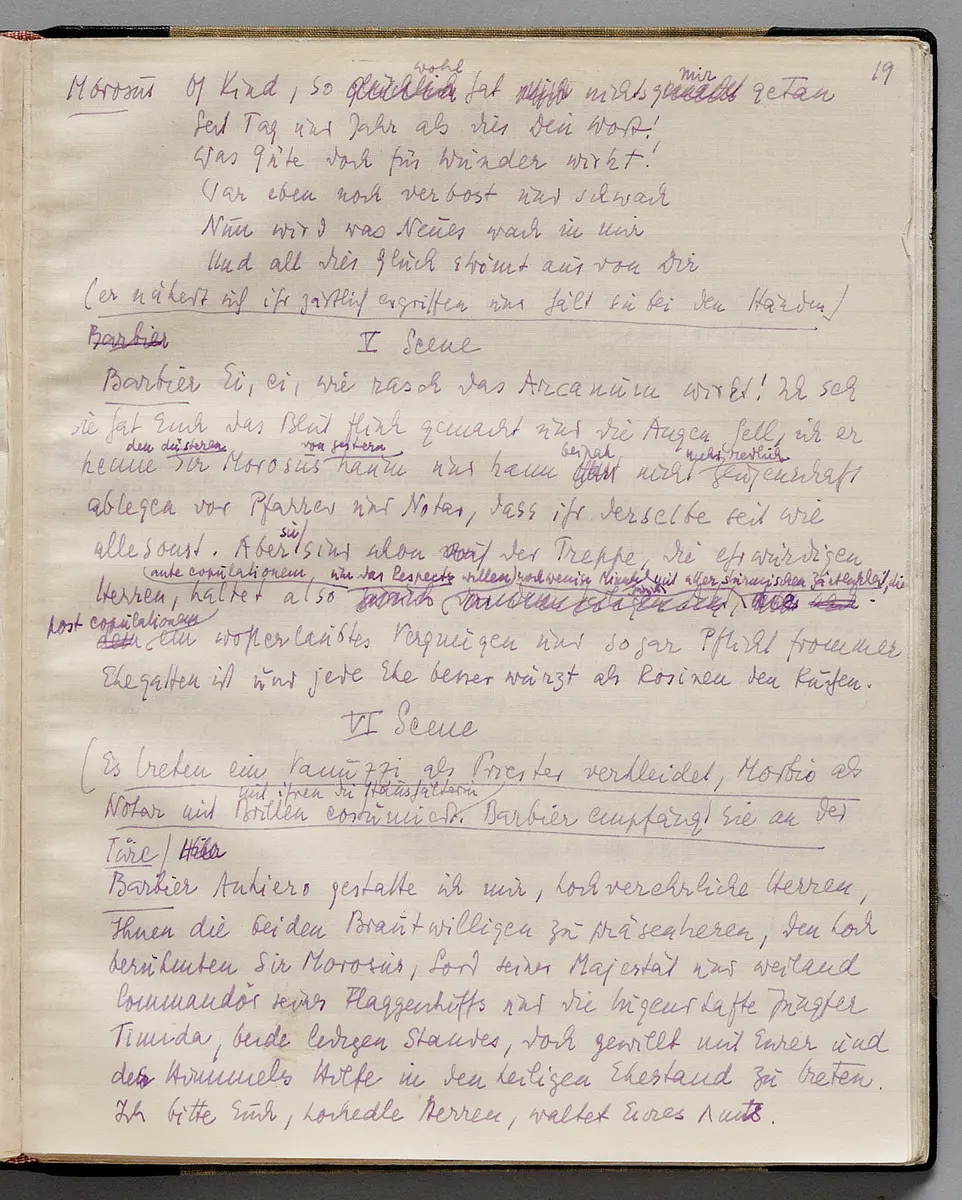 19
Morosus O Kind, so glücklich wohl hat mich nichts gemacht mir getan
Seit Tag und Jahr als dies Dein Wort!
Was Güte doch für Wunder wirkt!
War eben noch verbost und schwach
Nun wird was Neues wach in mir
Und all dies Glück strömt aus von Dir
(er nähert sich ihr zärtlich ergriffen und hält sie bei den Händen)
Barbier V Scene
Barbier Ei, ei, wie rasch das Arcanum wirkt! Ich seh
sie hat Euch das Blut flink gemacht und die Augen hell, ich er
den düsteren von gestern beinah mehr redlich
kenne Sir Morosus kaum und kann nicht Zeugenschaft
ablegen vor Pfarrer und Notar, dass ihr derselbe seit wie
allesonst. Aber sie sind schon auf der Treppe, die ehrwürdigen
(ante copulationem, um des Respects willen) noch wenige Minuten mit aller stürmischen Zärtlichkeit, die
Herren, haltet also
post copulationem
ein wohlerlaubtes Vergnügen und sogar Pflicht frommer
Ehegatten ist und jede Ehe besser würzt als Rosinen den Kuchen.
VI Scene
(Es treten ein Vanuzzi als Priester verkleidet, Morbio als
mit ihnen die Haushälterin
Notar mit Brillen costümiert. Barbier empfängt sie an der
Türe)
Barbier Anhiero gestatte ich mir, hochverehrliche Herren,
Ihnen die beiden Brautwilligen zu präsentieren, den hoch
berühmten Sir Morosus, Lord seiner Majestät und weiland
Commandör seines Flaggenschiffs und die tugenshafte Jungfer
Timida, beide ledigen Standes, doch gewillt mit Eurer und
des Himmels Hilfe in den heiligen Ehestand zu treten.
Ich bitte Euch, hochedle Herren, waltet Eures Amts.